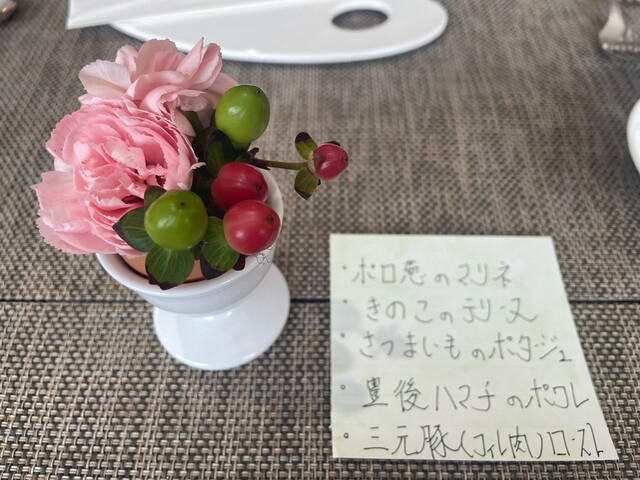 ・ポロ葱のマリネ
・きのこのテリーヌ
・さつまいものポタージュ
・豊後ハマチのポワレ
・三元豚(フィレ肉)ロースト